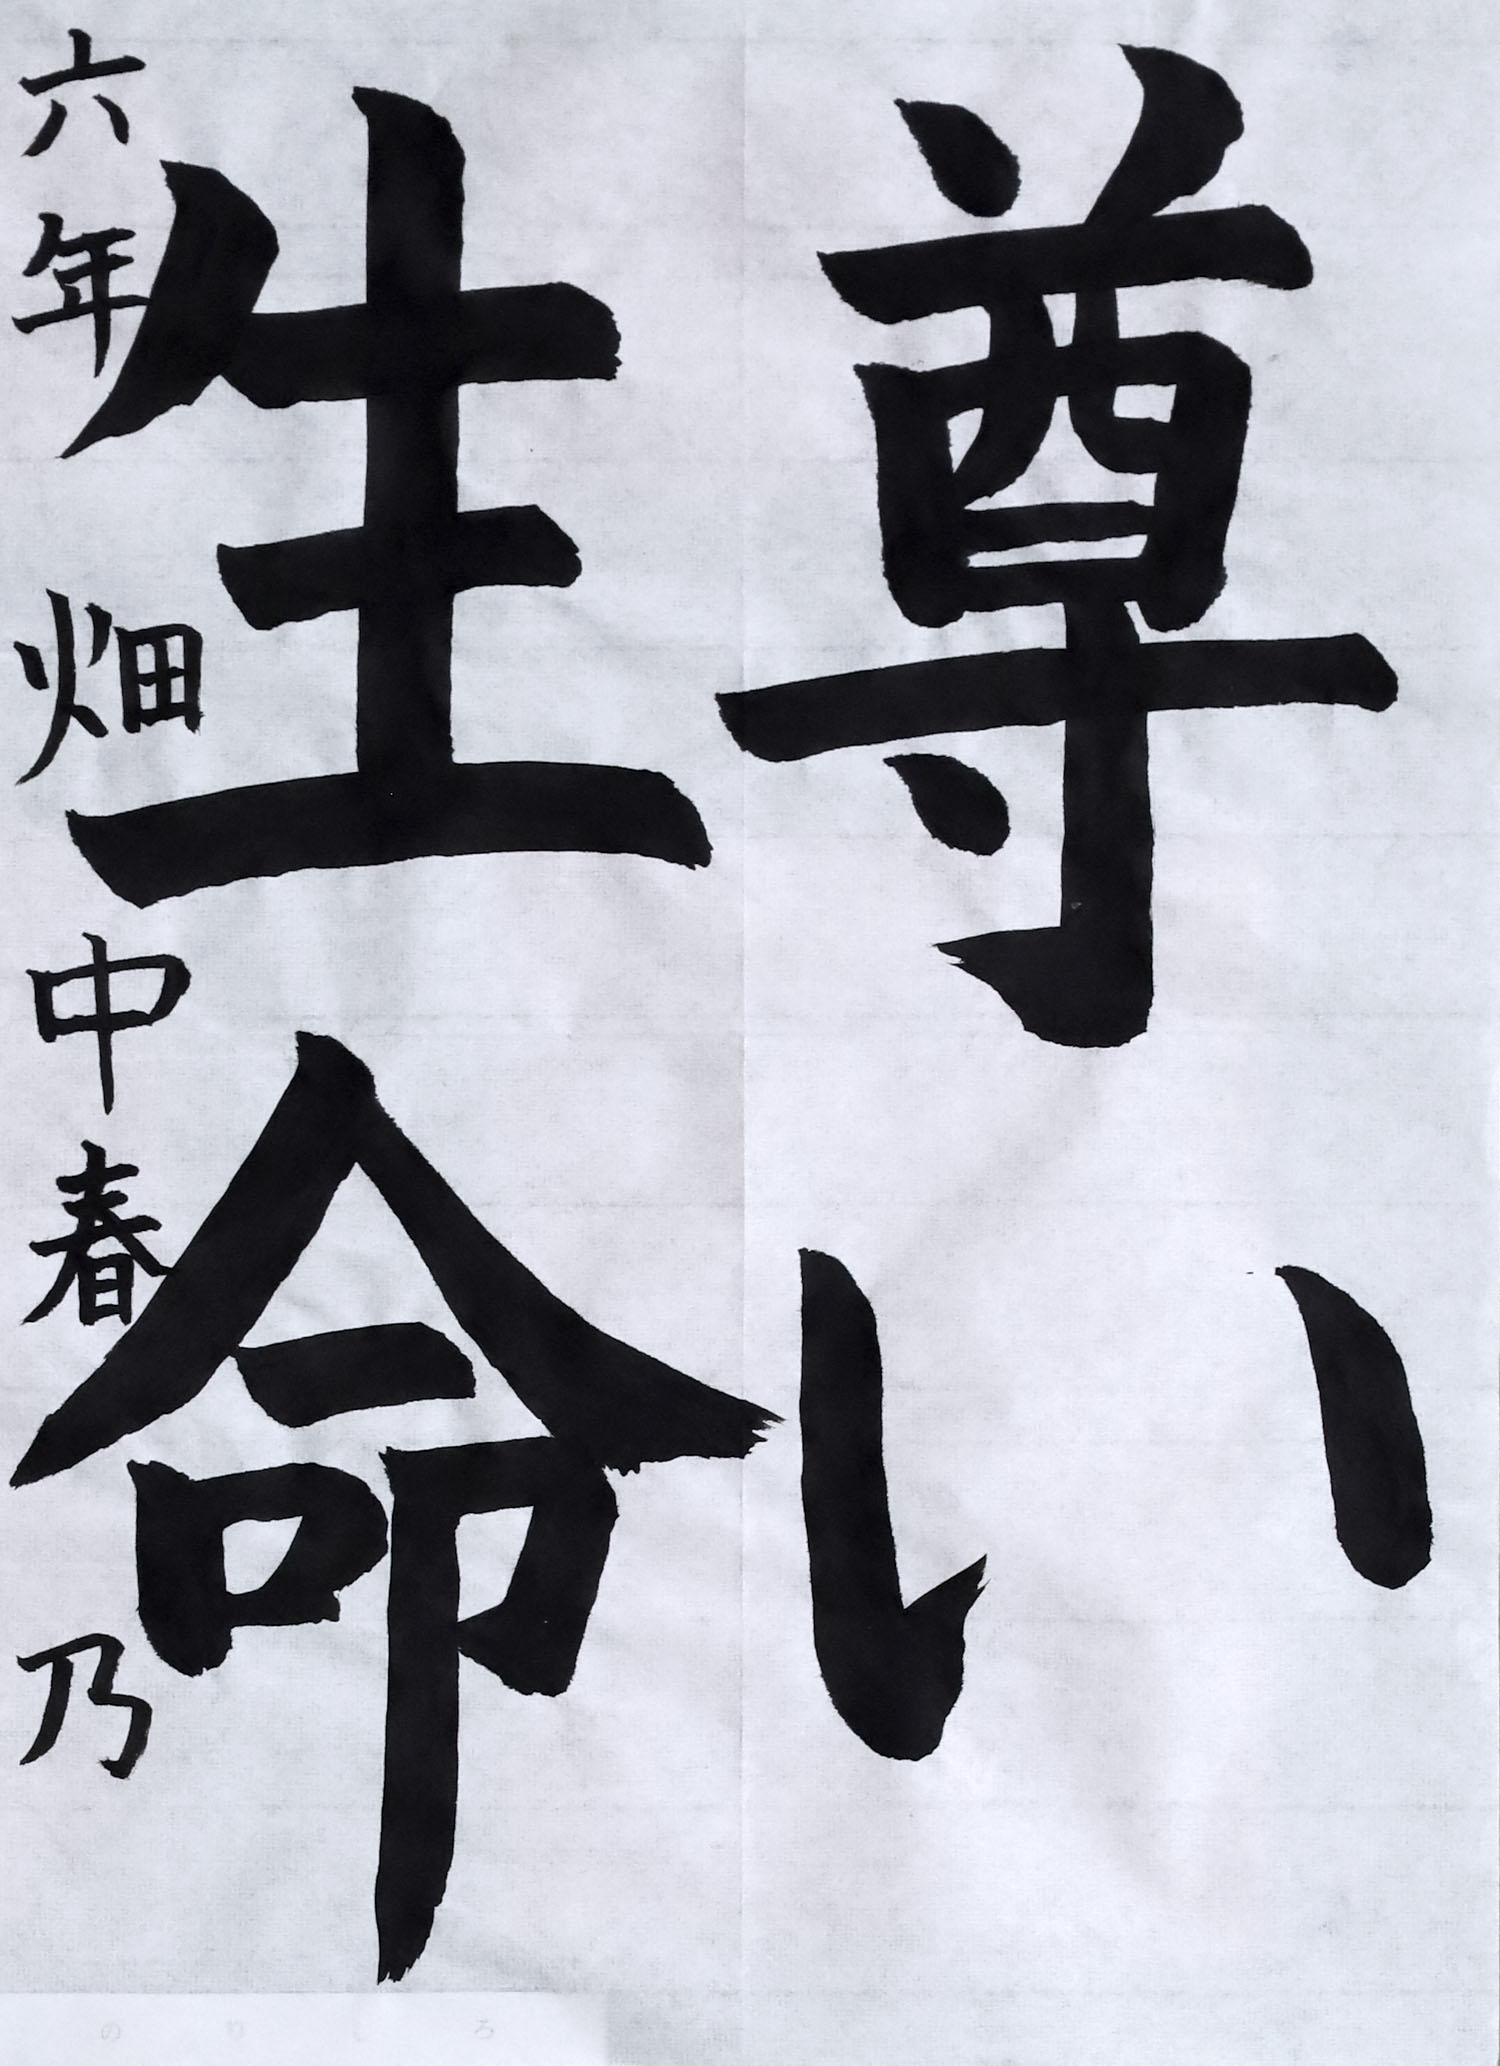 尊い
生命
六年 畑中春乃
のりしろ